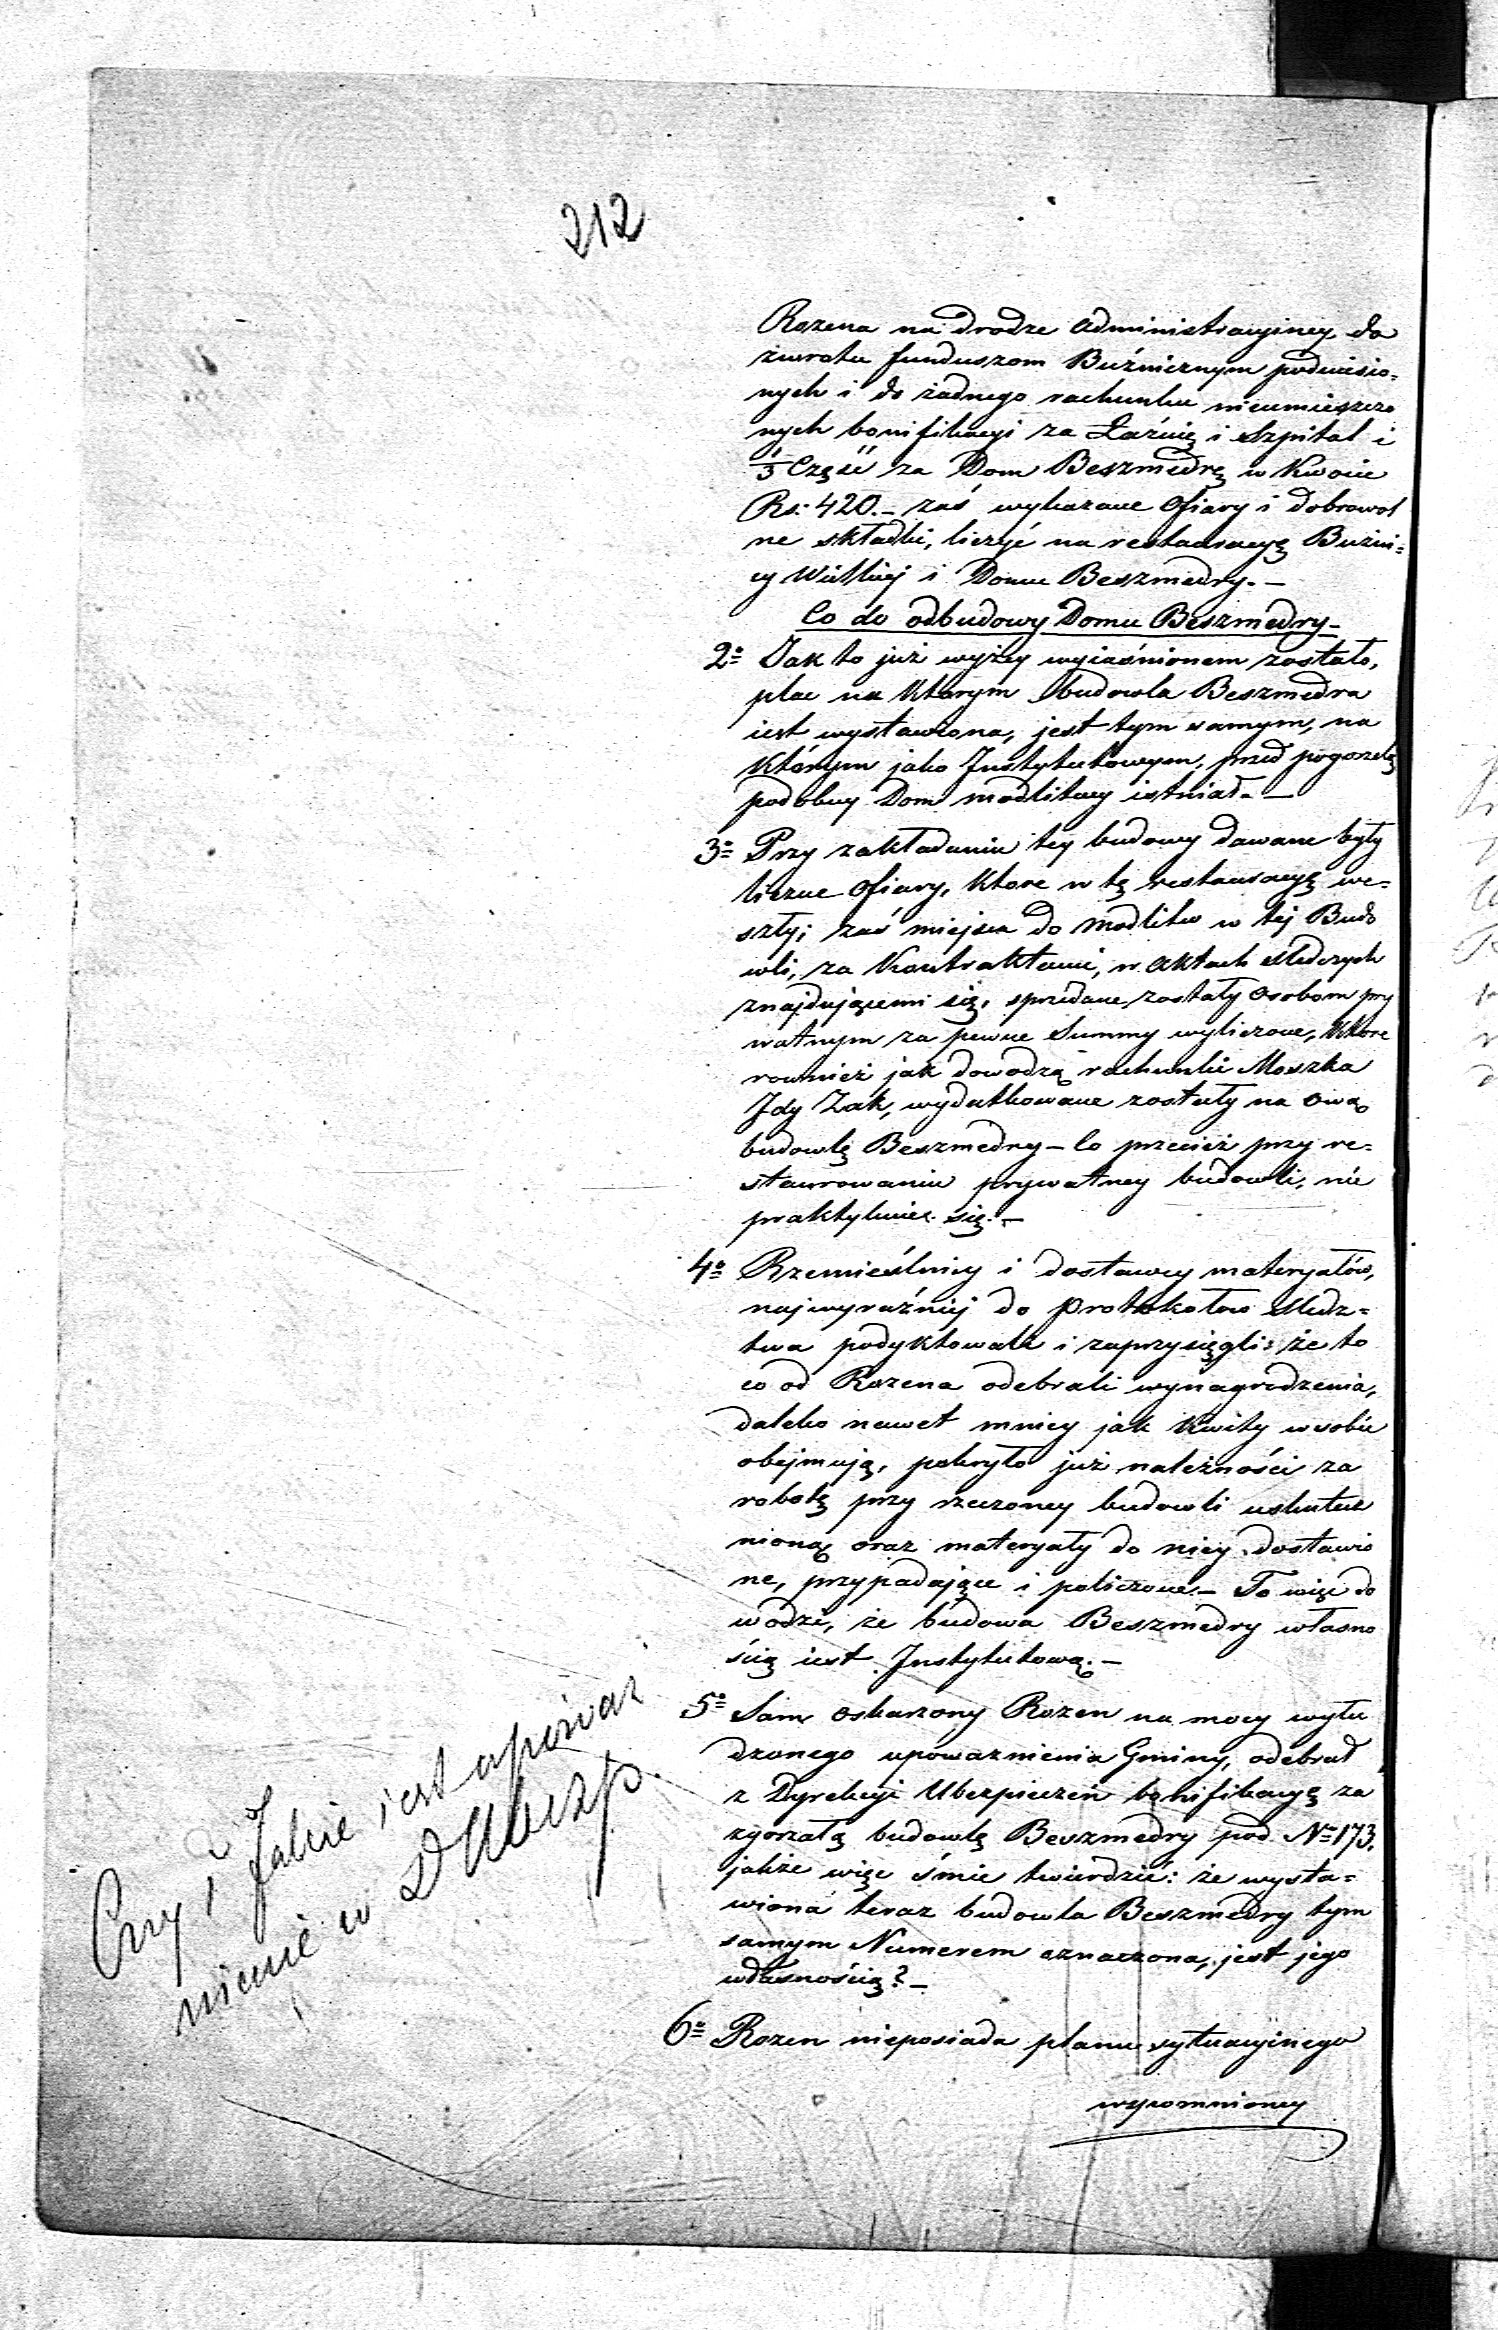 212
Rozena na drodze administracyiney do
zwrotu funduszom Bużnicznym podniesio=
nych i do żadnego rachunku nieumieszczo
nych bonifikacyi za Łaźnię i Szpital i
1/3 Część za Dom Beszmedrę w Kwocie
Rs: 420.– zaś wykazane Ofiary i dobrowol
ne składki, liczyć na restauracyę Buzni=
cy Wielkiej i Domu Beszmedry.–
Co do odbudowy Domu Beszmedry–
2o Jak to już wyżey wyiaśnionem zostało,
plac na Ktorym budowla Beszmedra
iest wystawiona, jest tym samym, na
Którym jako Instytutowym, przed pogorzelą
podobny Dom modlitwy istniał.–
3o Przy zakładaniu tey budowy dawane były
liczne Ofiary, Ktore w tę restauracyę we=
szły; zaś miejsca do modlitw w tej Budo
wli, za Kontraktami, w aktach śledczych
znajdującemi się, sprzedane zostały osobom pry
watnym za pewne Summy wyliczone, Ktore
rownież jak dowodzą rachunki Moszka
Jdy Zak, wydatkowane zostały na ową
budowlę Beszmedry – co przecież przy re=
staurowaniu prywatney budowli, nie
praktykuie się.–
4o Rzemieślnicy i dostawcy materyałów,
najwyraźniej do protokołow śledz=
twa podyktowali i zaprzysięgli: że to
co od Rozena odebrali wynagrodzenia,
daleko nawet mniey jak Kwity w sobie
obejmują, pokryło już należności za
robotę przy rzeczoney budowli uskutecz
nioną oraz materyały do niey dostawio
ne, przypadające i policzone.– To więc do
wodzi, że budowa Beszmedry własno
ścią iest Instytutową.–
5o Sam oskarzony Rozen na mocy wyłu
dzonego upoważnienia Gminy, odebrał
z Dyrekcyi Ubezpieczeń bonifikacyę za
zgorzałą budowlę Beszmedry pod No 173.
jakże więc śmie twierdzić: że wysta=
wiona teraz budowla Beszmedry tym
samym Numerem oznaczona, jest jego
własnością?–
6o Rozen nieposiada planu sytuacyinego
wspomnioney
Czy i Jakie iest upoważ
nienie w D Ubezp.